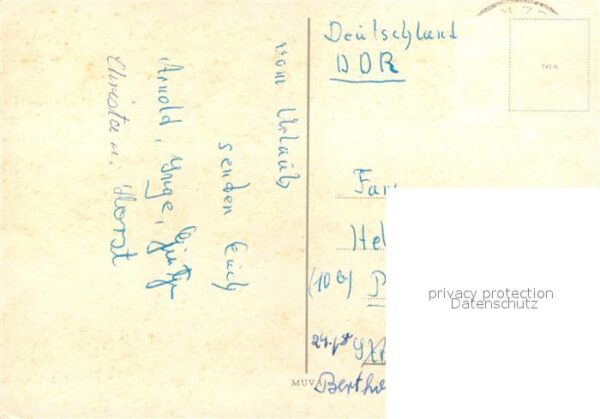 vom Urlaub
senden Euch
Arnold, Inge,
Christa u. Horst
Deutschland
DDR
Fa
Hel
(10b) P
24.
Berthol
MUV
privacy protection
Datenschutz